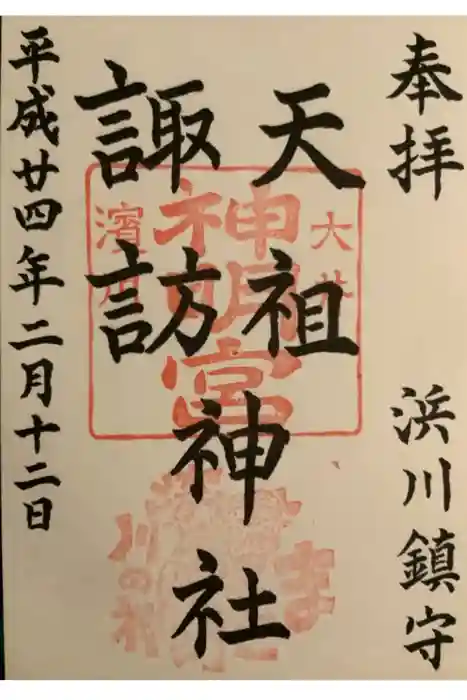 奉拝
浜川鎮守
天祖
諏訪
神社
平成廿四年二月十二日
神明宮
大井
濱川